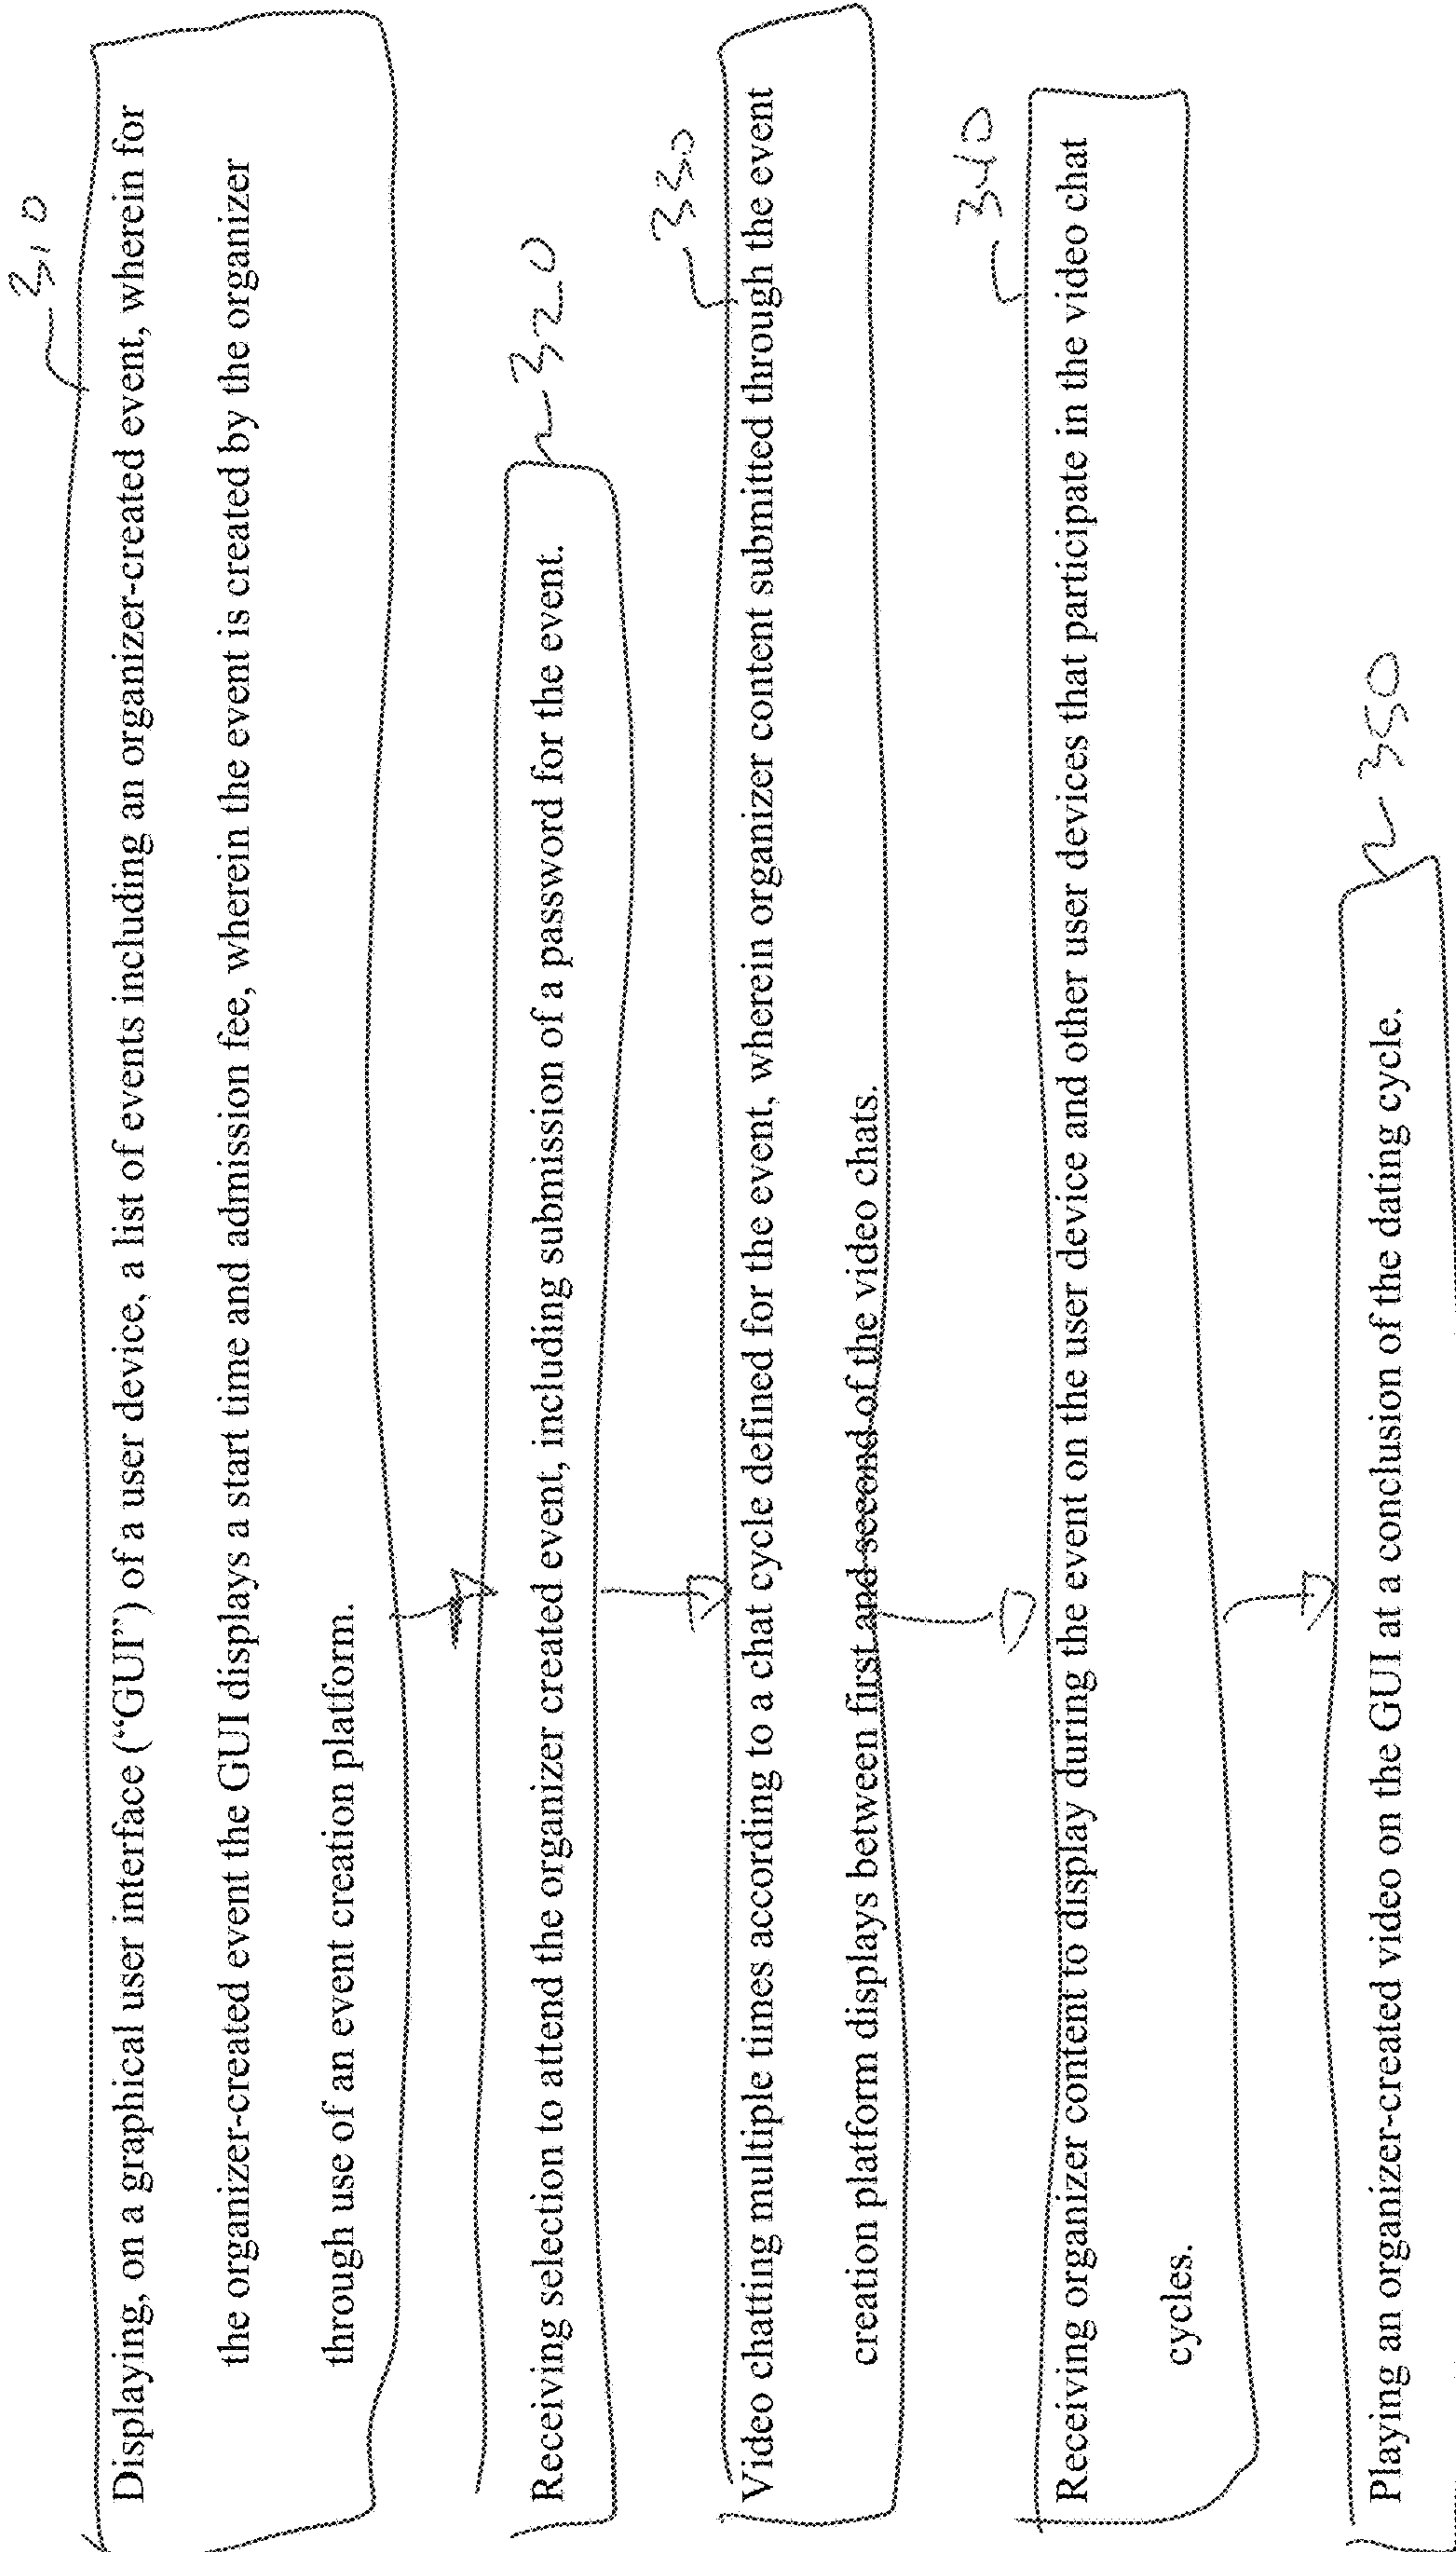 310
Displaying, on a graphical user interface (“GUI”) of a user device, a list of events including an organizer-created event, wherein for
the organizer-created event the GUI displays a start time and admission fee, wherein the event is created by the organizer
through use of an event creation platform.
320
Receiving selection to attend the organizer created event, including submission of a password for the event.
330
Video chatting multiple times according to a chat cycle defined for the event, wherein organizer content submitted through the event
creation platform displays between first and second of the video chats.
340
Receiving organizer content to display during the event on the user device and other user devices that participate in the video chat
cycles.
350
Playing an organizer-created video on the GUI at a conclusion of the dating cycle.